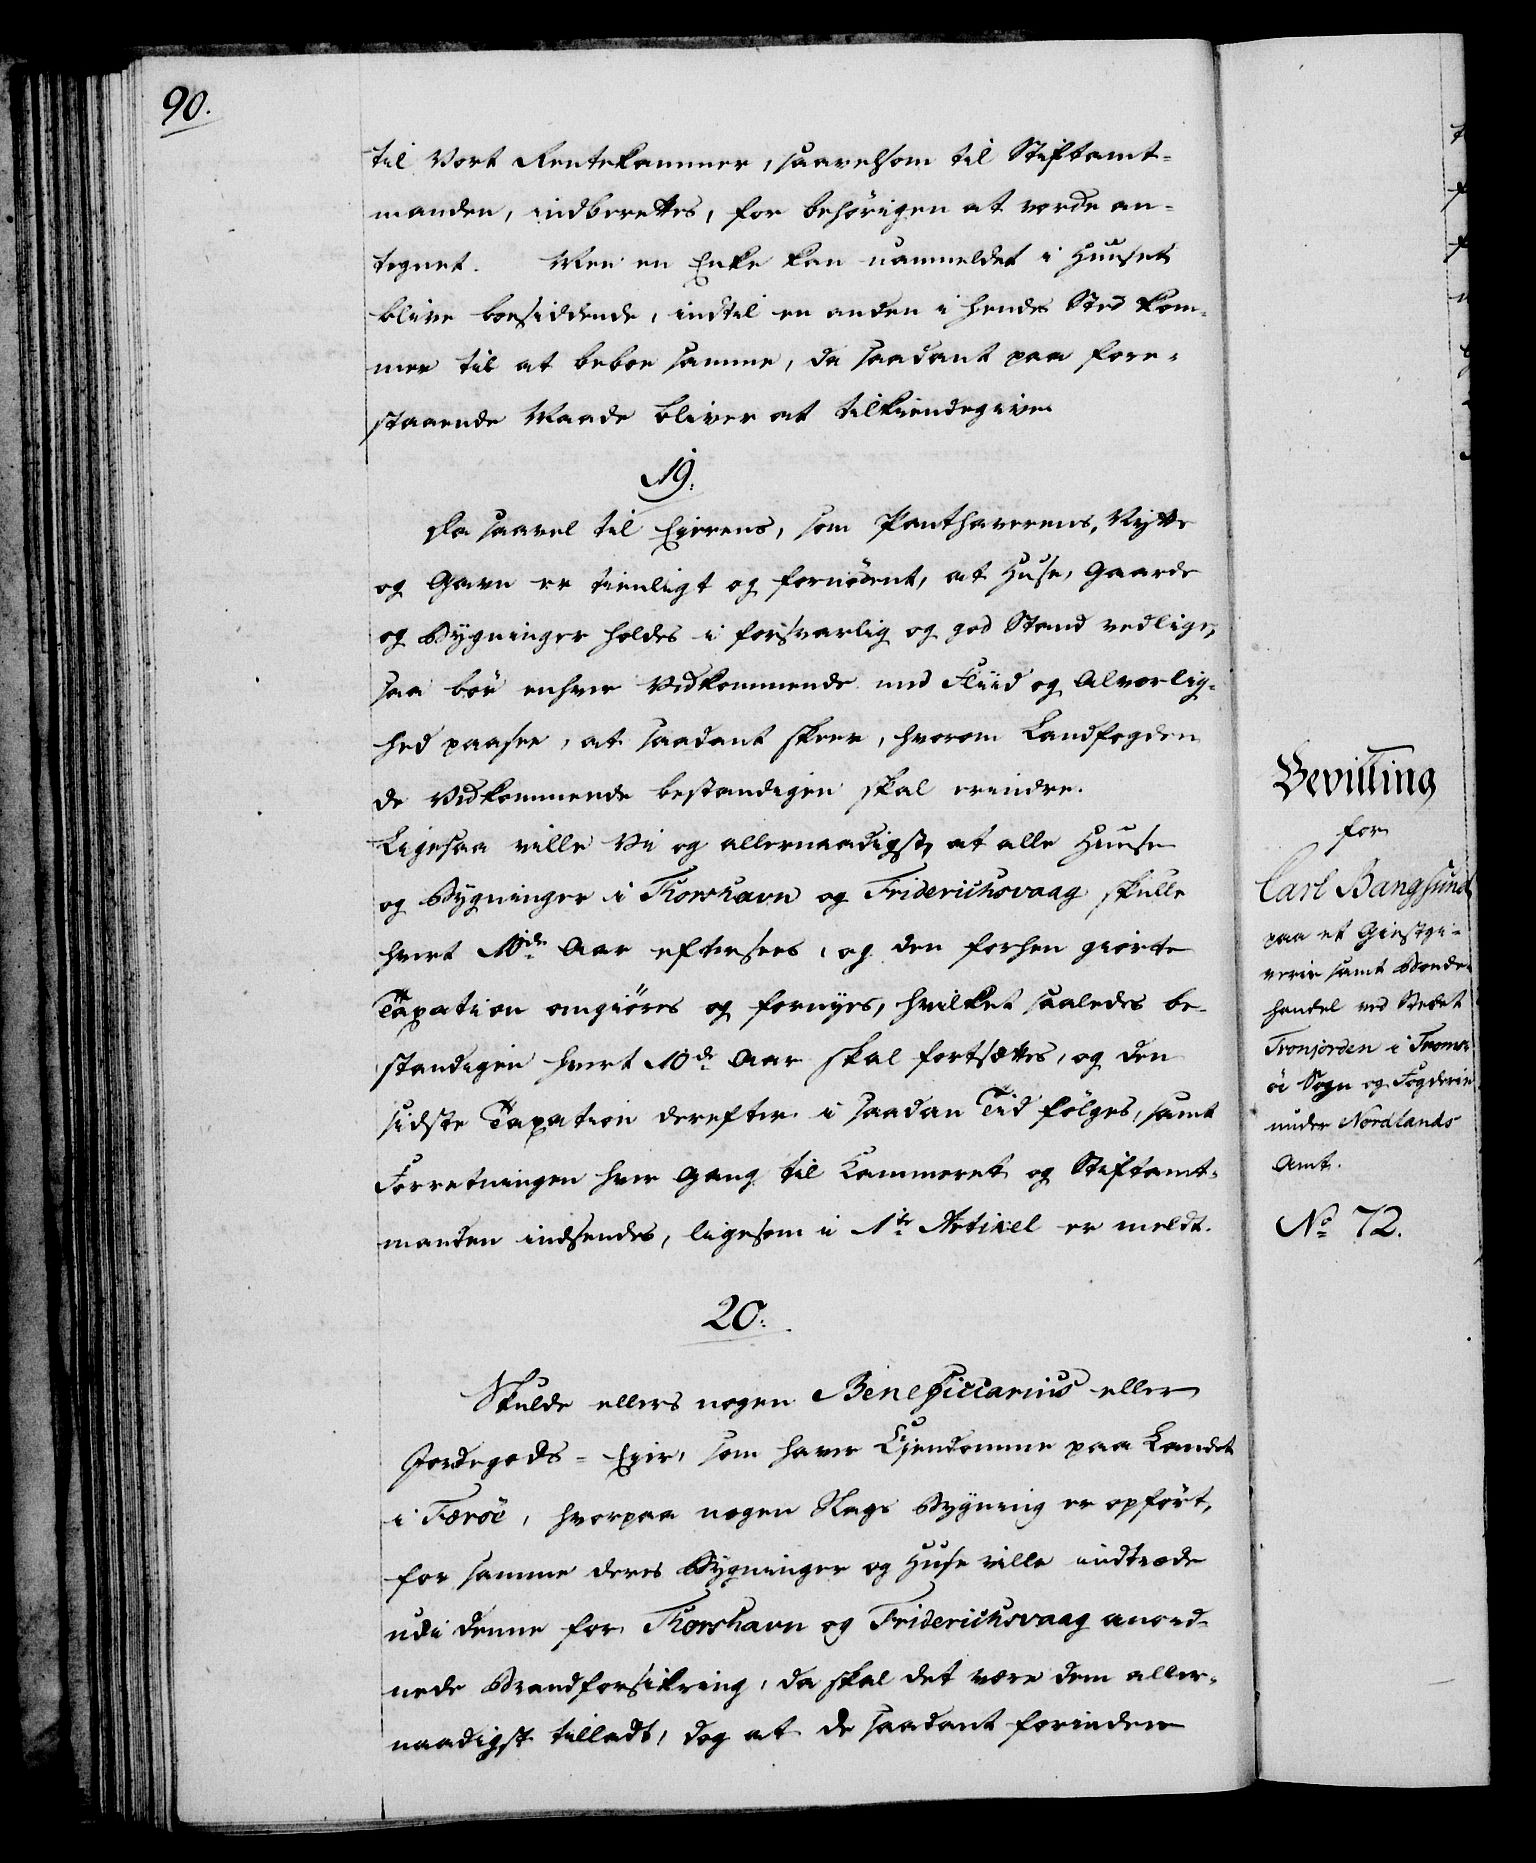 90.
til Vort Rentekammer, saavelsom til Stiftamt-
manden, indberettes, for behörigen at vorde an-
tegnet. Men en Enke kan uanmeldet i Huuset
blive boesiddende, indtil en anden i hendes Sted kom-
mer til at beboe samme, da saadant paa fore-
staaende Maade bliver at tilkiendegive.
19.
Da saavel til Eyerens, som Panthaverens, Nytte
og Gavn er tienligt og fornödent, at Huse, Gaarde
og Bygninger holdes i forsvarlig og god Stand vedlige,
saa bör enhver Vedkommende med Fliid og Alvorlig-
hed paasee, at saadant skeer, hvorom Landfogden
de Vedkommende bestandigen skal erindre.
Ligesaa ville Vi og allernaadigst, at alle Huuse
og Bygninger i Thorshavn og Friderichsvaag skulle
hvert 10de Aar eftersees, og den forhen giorte
Taxation omgiöres og fornyes, hvilket saaledes be-
standigen hvert 10de Aar skal fortsættes, og den
sidste Taxation derefter i saadan Tid fölges, samt
Forretningen hver Gang til Kammeret og Stiftamt-
manden indsendes, ligesom i 1te Artikel er meldt.
20.
Skulde ellers nogen Beneficiarius eller
Jordegods-Eyer, som haver Ejendomme paa Landet
i Færöe, hvorpaa nogen Slags Bygning er opfört,
for samme deres Bygninger og Huse ville indtræde
udi denne for Thorshavn og Friderichsvaag anord-
nede Brandforsikring, da skal det være dem aller-
naadigst tilladt, dog at de saadant forinden
Bevilling
for
Carl Bangsund
paa et Giestgi-
verie samt Bonde-
handel ved Stedet
Tronjorden i Troms-
öe Sogn og Fogderie
under Nordlands
Amt.
No 72.